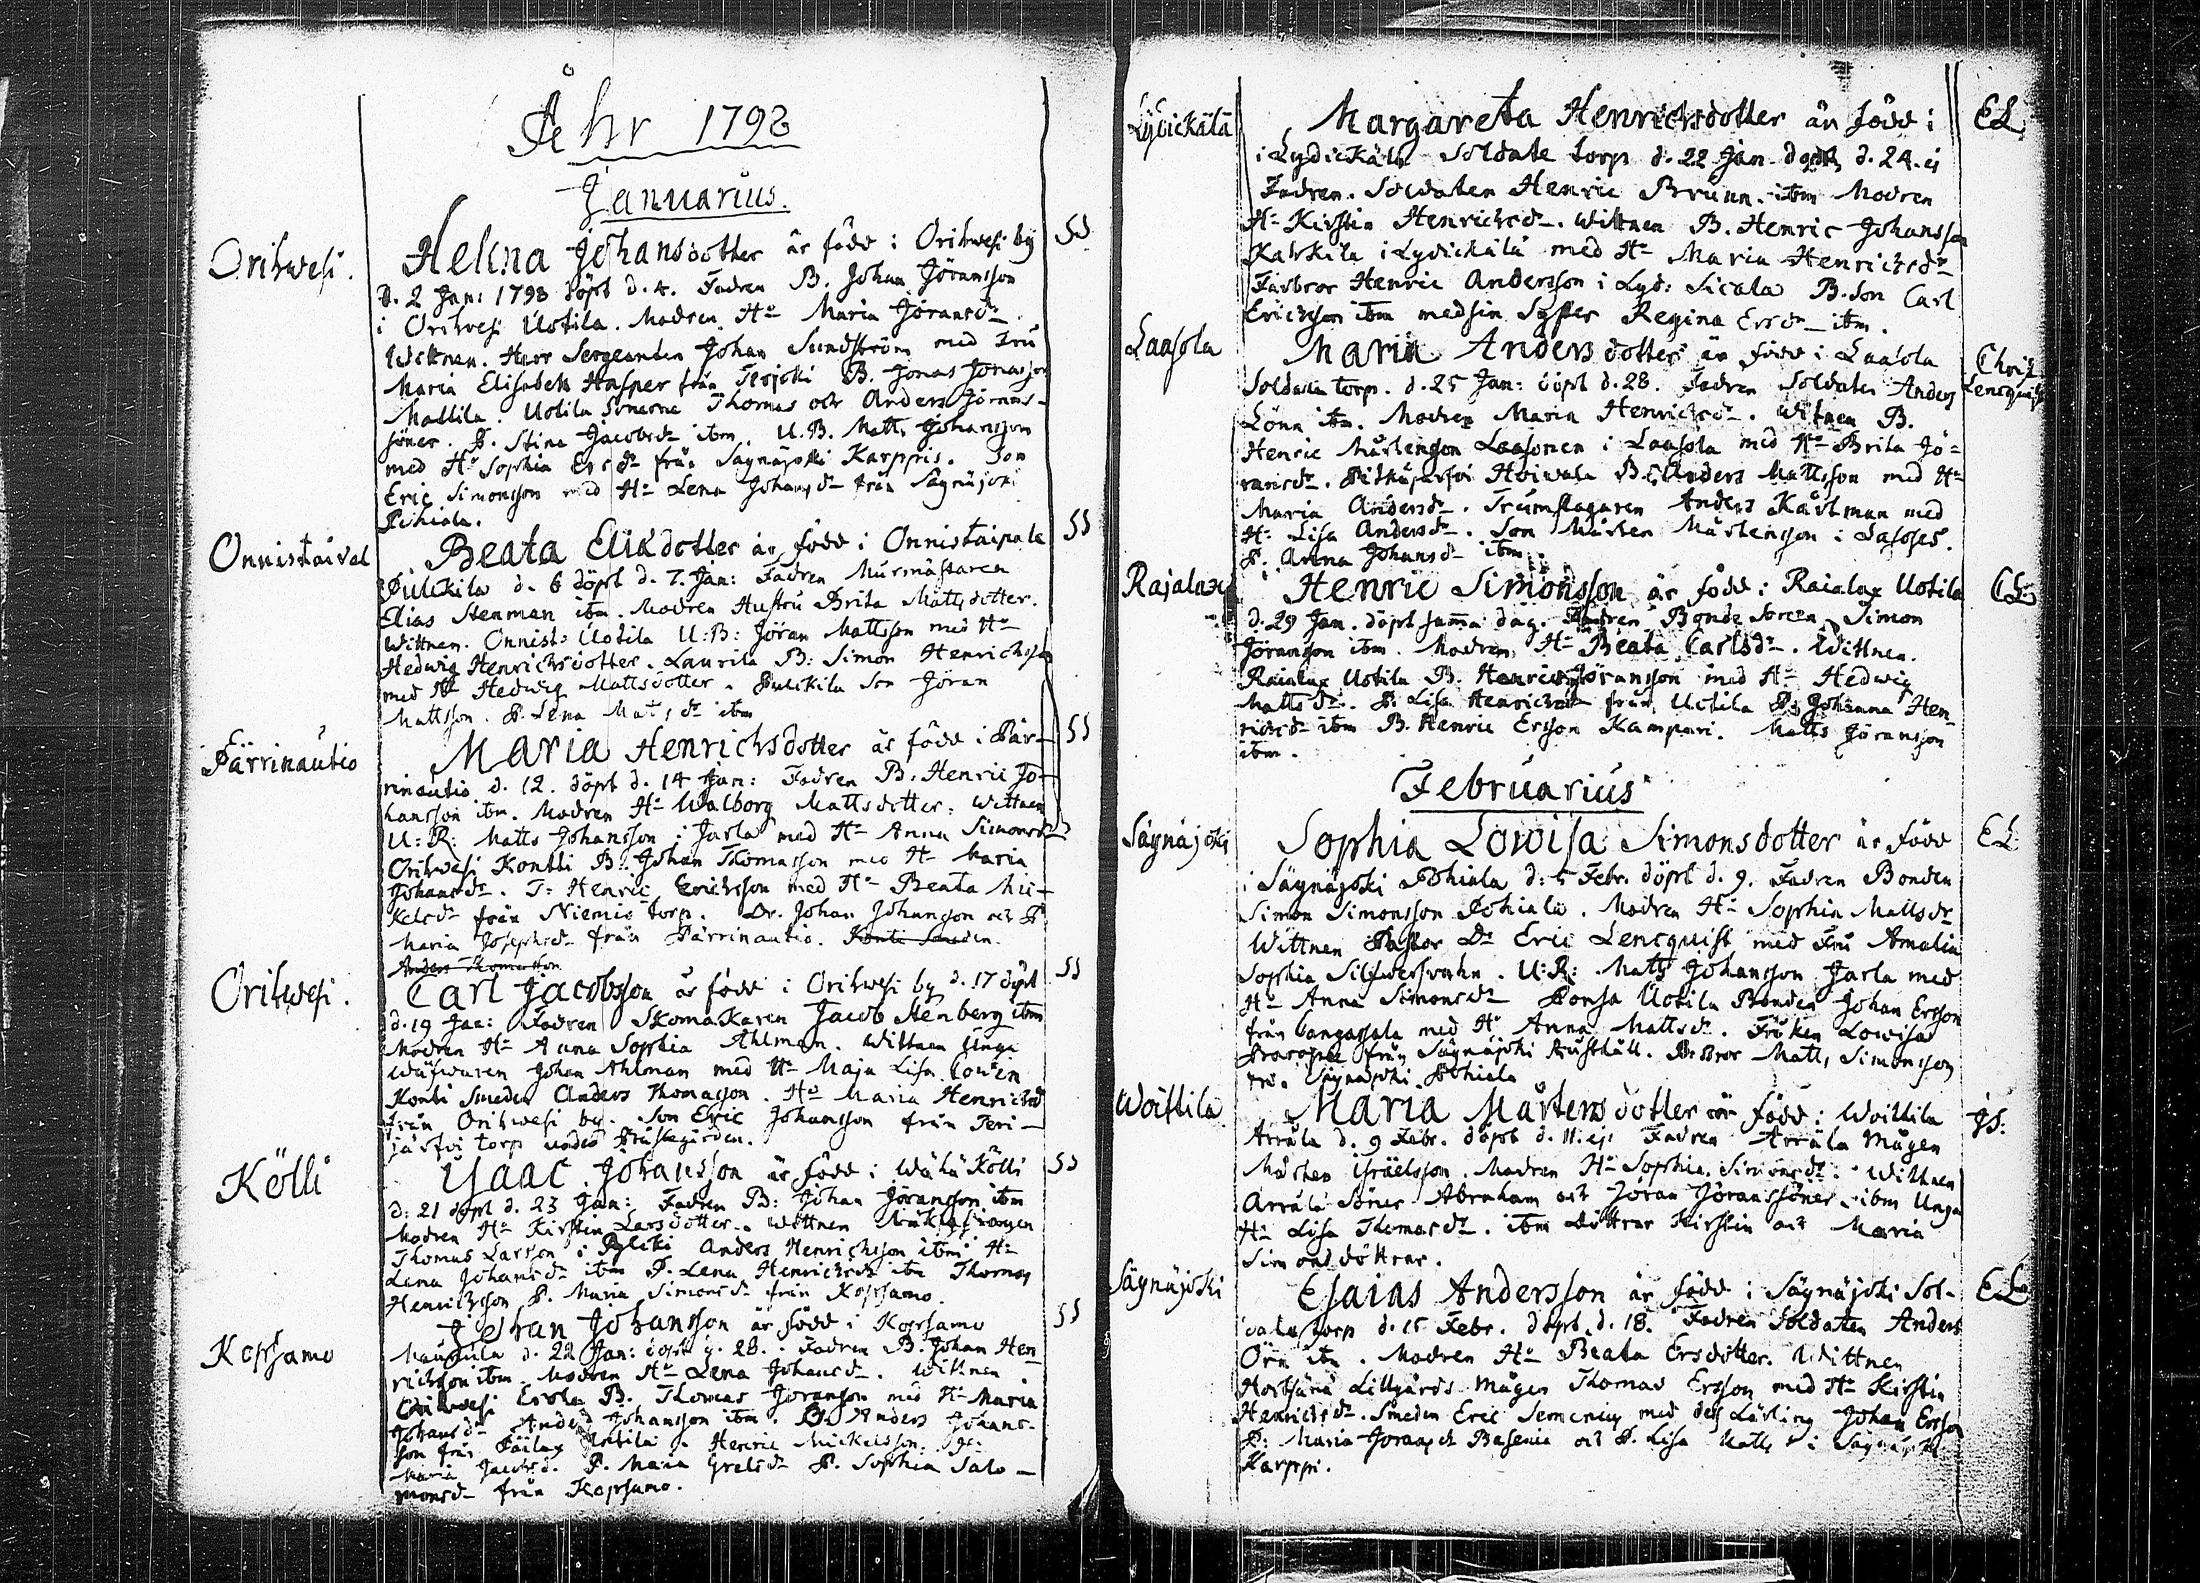 Åhr 1793
Januarius.
Orihwesi.
Helena Johansdotter är född i Orihwesi by
SS
d. 2 Jan: 1793 döpt d. 4. Fadren B. Johan Jöransson
i Orihwesi Uotila. Modren Hu Maria Jöransdr
Wittnen. Herr Sergeanten Johan Sundström med Fru
Maria Elisabeth Hasper från Teojoki B. Jonas Jonasson
Mattila. Uotila Sönerne Thomas och Anders Jörans-
söner. P. Stina Jacobsdr ibm. U.B. Matts Johansson
med Hu Sophia Ersdr från Säynäjoki Karppis. Son
Eric Simonsson med Hu Lena Johansdr från Säynäjoki
Pohiala.
Onnistaival
Beata Eliædotter är född i Onnistaipale
SS
Pulckila d. 6 döpt d. 7. Jan: Fadren Murmästaren
Elias Stenman ibm. Modren Hustru Brita Mattsdotter.
Wittnen. Onnist: Uotila U:B: Jöran Mattsson med Hu
Hedwig Henrichsdotter. Laurila B: Simon Henrichsson
med Hu Hedwig Mattsdotter. Pulckila Son Jöran
Mattsson. P. Lena Matsdr ibm
Pärrinautio
Maria Henrichsdotter är född i Pär-
SS
rinautio d. 12. döpt d. 14 Jan: Fadren B. Henric Jo-
hansson ibm. Modren Hu Walborg Mattsdotter. Wittnen
U:R: Matts Johansson i Jarla med Hu Anna Simonsdr
Orihwesi Kontti B: Johan Thomasson med Hu Maria
Johansdr. T: Henric Erichsson med Hu Beata Mic-
kelsdr från Niemis torp. Dr. Johan Johansson och P.
Maria Josephsdr från Pärrinautio. Konti Smeden.
Anders Thomasson
Orihwesi.
Carl Jacobsson är född i Orihwesi by d. 17 döpt
SS
d. 19 Jan: Fadren Skomakaren Jacob Stenberg ibm
Modren Hu Anna Sophia Ahlman. Wittnen Unge
Wäfwaren Johan Ahlman med Hu Maja Lisa
Konti Smeden Anders Thomasson. Hu Maria Henrichsd
från Orihwesi by. Son Eric Johansson från Teri-
järfvi torp under Prästegården.
Kölli
Isaac Johansson är född i Wähä Kölli
SS
d: 21 döpt d. 23 Jan: Fadren B: Johan Jöransson ibm
Modren Hu Kirstin Larsdotter. Wittnen
Thomas Larsson i Anders Henrichsson ibm Hu
Lena Johansdr ibm P. Lena Henrichsdr ibm Thomas
Henrichsson P. Maria Simonsdr från Kopsamo.
Kopsamo
Johan Johansson är född i Kopsamo
SS
d. 22 Jan: döpt d. 28. Fadren B. Johan Hen-
richson ibm. Modren Hu Lena Johansdr. Wittnen
Orihwesi Erola B. Thomas Joransson med Hu Maria
Johansdr Anders Johansson ibm. Anders Johans-
son från Uotila. Henric Mickelsson.
Maria Jacobsd. P. Maria Gretsdr P. Sophia Salo-
monsdr från Kopsamo.
Lydickälä
Margareta Henrichsdotter är född i
EL
i Lydickälä Soldate torp d. 22 Jan. döpt d. 24.
Fadren. Soldaten Henric Brunn. ibm Modren
Hu Kirstin Henrichsdr. Wittnen B. Henric Johansson
Katkila i Lydickälä med Hu Maria Henrichsdr
Farbror Henric Andersson i Lyd: Sicala B. Son Carl
Erichson ibm med sin Syster Regina Ersdr ibm.
Laasola
Maria Anders dotter är född i Laasola
Christ
Lencquist
Soldate torp. d. 25 Jan: döpt d. 28. Fadren Soldaten Anders
Lönn ibm. Modren Maria Henrichsdr. Witnen B.
Henric Mårtensson Laasonen i Laasola med Hu Brita Jö-
ransdr. Pitkäjärfvi Hoiwala B. Anders Mattsson med Hu
Maria Andersdr. Trumslagaren Anders Kästman med
Hu Lisa Andersdr. Son Mårten Mårtensson i
P. Anna Johansdr ibm.
Rajalax
Henric Simonsson är född i Raialax Uotila
CL
d. 29 Jan. döpt samma dag. Fadren Bonde Sonen Simon
Jöransson ibm. Modren Hu Beata Carlsdr. Wittnen.
Raialax Uotila B. Henric Jöransson med Hu Hedwig
Mattsdr. P. Lisa Henrichsdr från Uotila P. Johanna Hen-
richsdr ibm B. Henric Ersson Kampari. Matts Jöransson
ibm.
Februarius
Säynäjoki
Sophia Lowisa Simonsdotter är född
EL
i Säynäjoki Pohiala d: 5 Febr. döpt d. 9. Fadren Bonden
Simon Simonsson Pohiala. Modren Hu Sophia Mattsdr
Wittnen Pastor Dr Eric Lencquist med Fru Amalia
Sophia Silfwersvahn. U:R: Mats Johansson Jarla med
Hu Anna Simonsdr Ponsa Uotila Bonden Johan Ersson
från Cangasala med Hu Anna Mattsdr. Fröken Lowisa
från Säynäjoki Rusthåll. Matts Simonsson
Säynäjoki Pohiala
Woittila
Maria Mårtensdotter är född i Woittila
JS:
Arrala d. 9 Febr. döpt d. 11. Fadren Arrala Mågen
Mårten Israelsson. Modren Hu Sophia Simonsdr. Wittnen
Arrala Söner Abraham och Jöran Jöranssöner ibm Unga
Hu Lisa Thomasdr. ibm Döttrar Kirstin och Maria
Simons döttrar.
Säynäjoki
Esaias Andersson är född i Säynäjoki Sol-
EL
date torp d. 15 Febr. döpt d. 18. Fadren Soldaten Anders
Örn ibm. Modren Hu Beata Ersdotter. Wittnen
Lillgårds Mågen Thomas Ersson med Hu Kirstin
Henrichsdr. Smeden Eric med des Lärling Johan Ersson
P: Maria och P. Lisa Matts i Säynäjoki
Karppi.